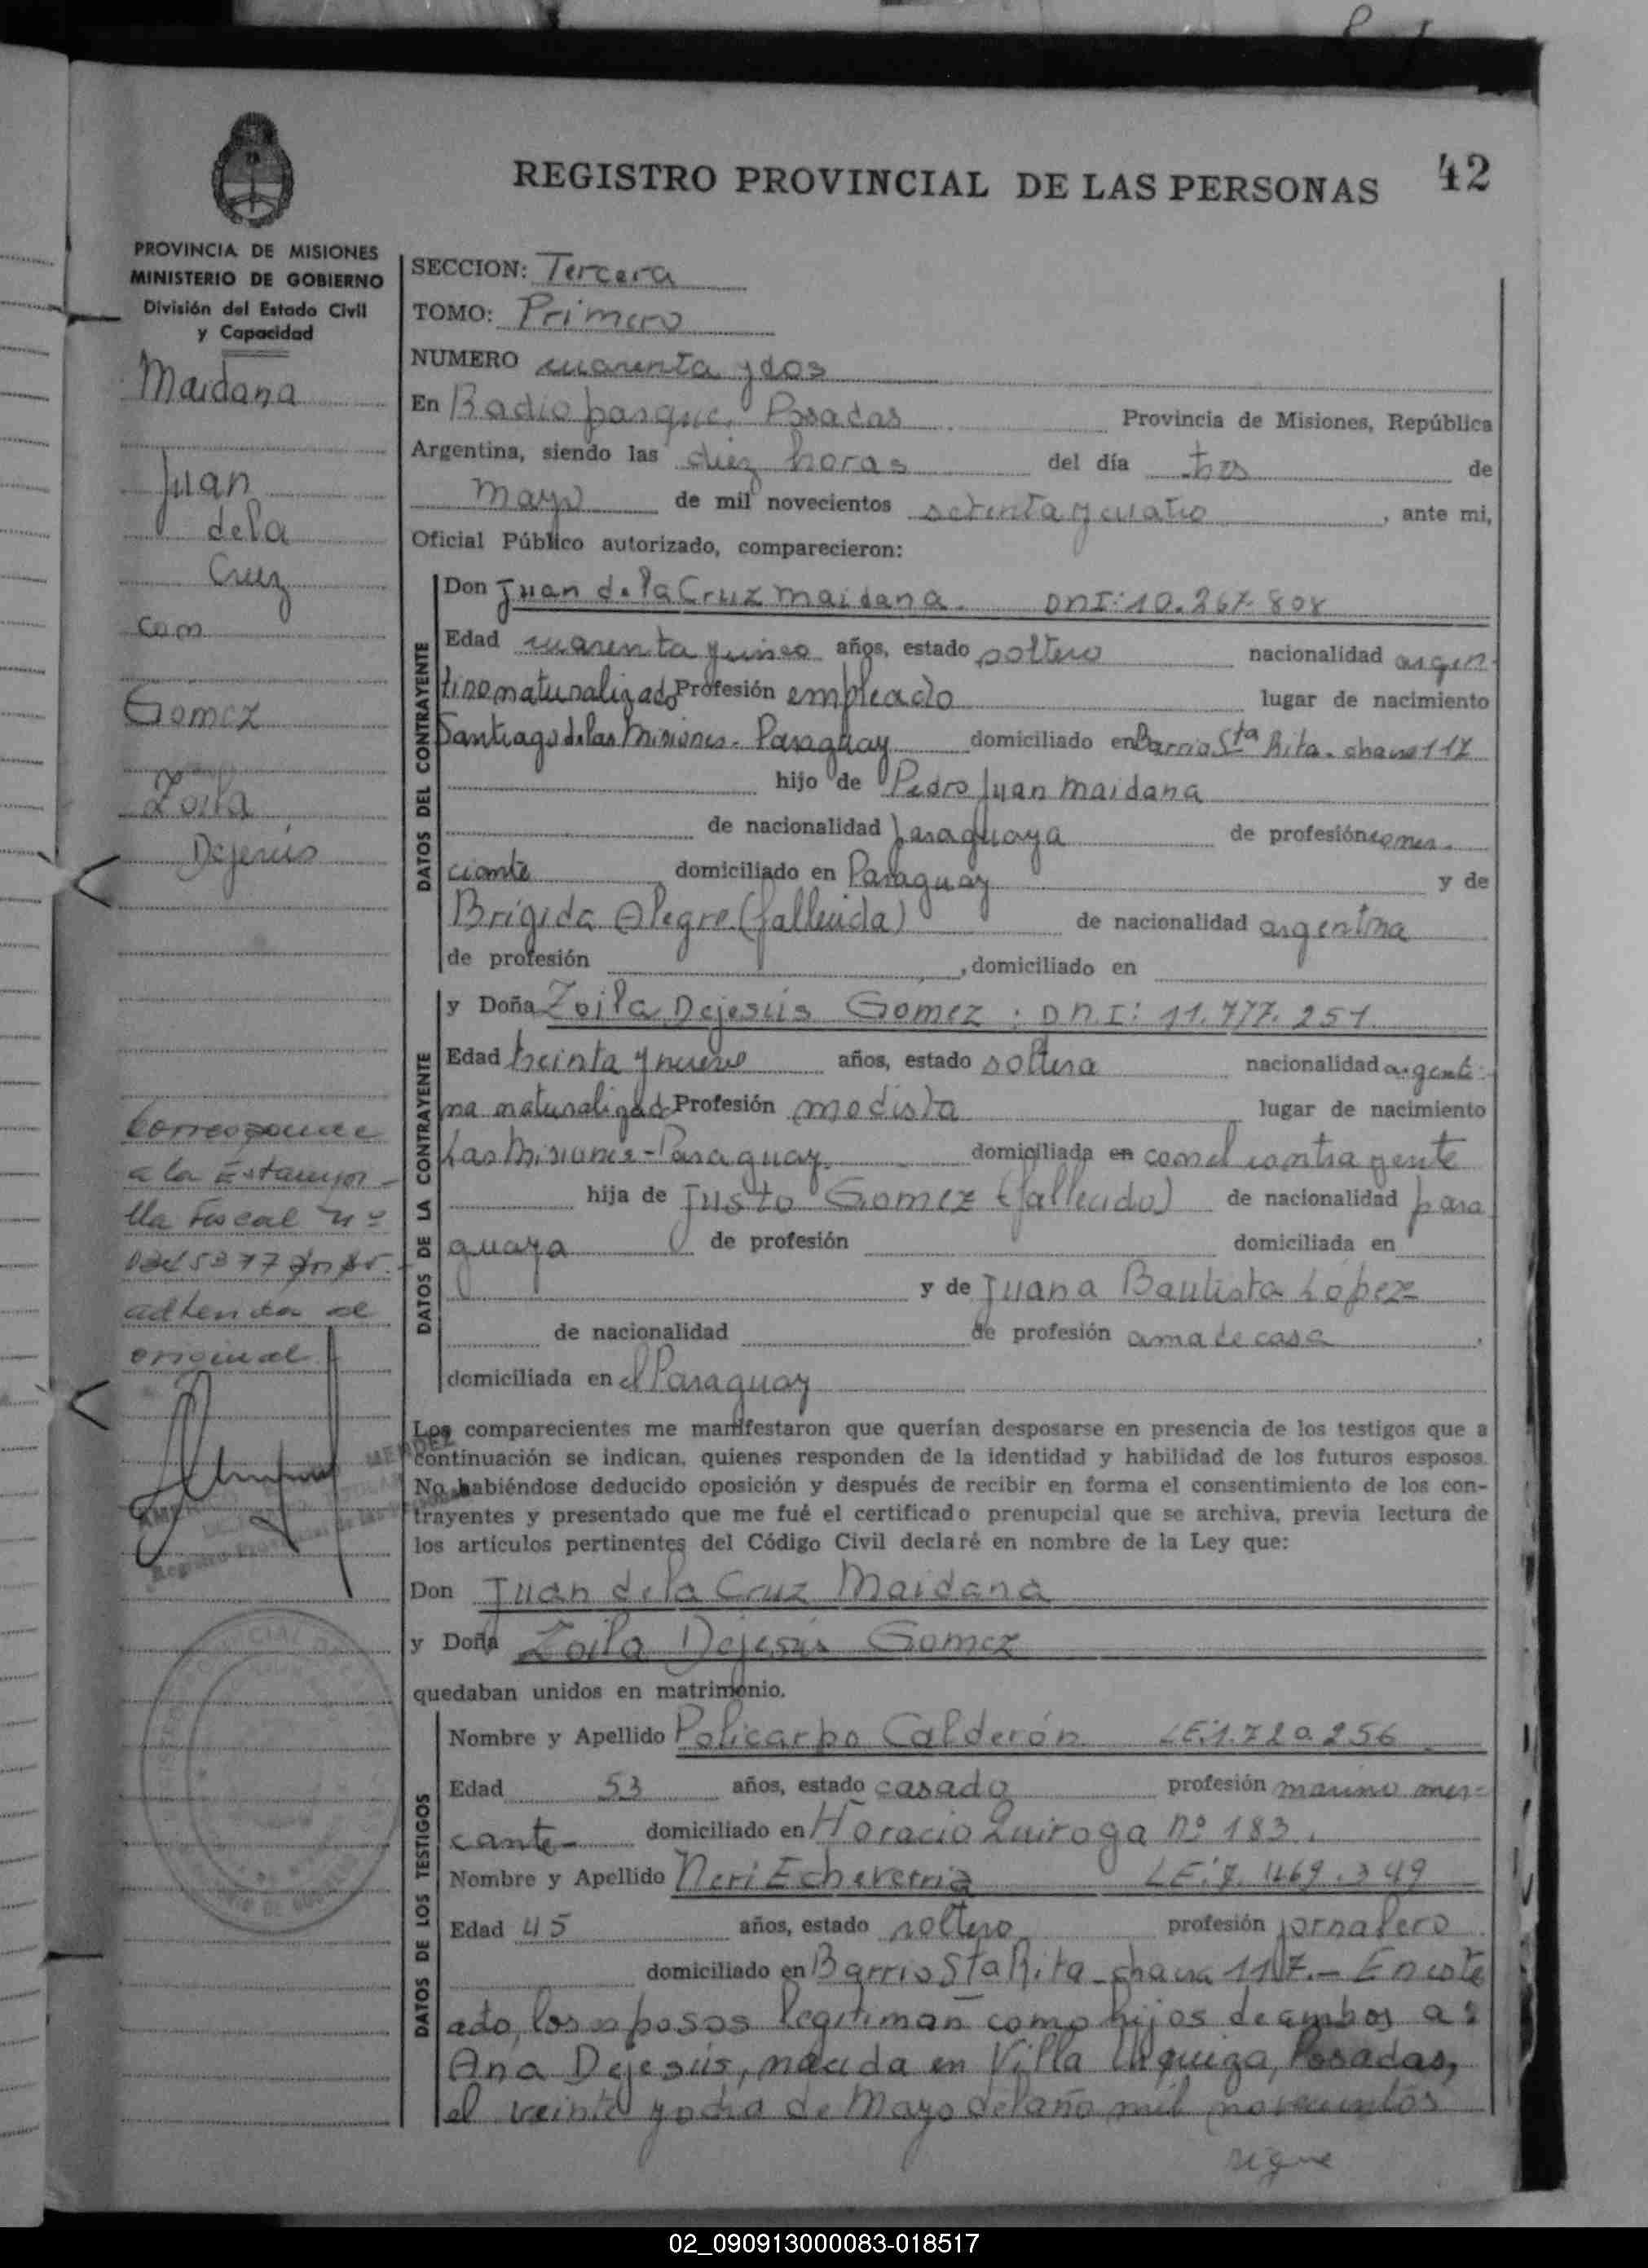 REGISTRO PROVINCIAL DE LAS PERSONAS 42
PROVINCIA DE MISIONES
MINISTERIO DE GOBIERNO
División del Estado Civil
y Capacidad
Maidana
Juan
de la
Cruz
con
Gomez
Zoila
Dejesús
Corresponde
a la Estampi-
lla Fiscal Nº
adherida al
original
SECCION: Tercera
TOMO: Primero
NUMERO cuarenta y dos
En Radio parque, Posadas Provincia de Misiones, República
Argentina, siendo las diez horas del día tres de
mayo de mil novecientos setenta y cuatro, ante mi,
Oficial Público autorizado, comparecieron:
DATOS DEL CONTRAYENTE
Don Juan de la Cruz Maidana. DNI: 10.267.808
Edad cuarenta y cinco años, estado soltero nacionalidad argen-
tino naturalizado Profesión empleado lugar de nacimiento
Santiago de las Misiones - Paraguay domiciliado en Barrio Sta Rita - chacra 117
hijo de Pedro Juan Maidana
de nacionalidad paraguaya de profesión comer-
ciante domiciliado en Paraguay y de
Brígida Alegre (fallecida) de nacionalidad argentina
de profesión , domiciliado en
DATOS DE LA CONTRAYENTE
y Doña Zoila Dejesús Gomez . DNI: 11.777.251
Edad treinta y nueve años, estado soltera nacionalidad argenti-
na naturalizada Profesión modista lugar de nacimiento
Las Misiones - Paraguay domiciliada en con el contrayente
hija de Justo Gomez (fallecido) de nacionalidad para
guaya de profesión domiciliada en
y de Juana Bautista López
de nacionalidad de profesión ama de casa
domiciliada en el Paraguay
Los comparecientes me manifestaron que querían desposarse en presencia de los testigos que a
continuación se indican, quienes responden de la identidad y habilidad de los futuros esposos.
No habiéndose deducido oposición y después de recibir en forma el consentimiento de los con-
trayentes y presentado que me fué el certificado prenupcial que se archiva, previa lectura de
los artículos pertinentes del Código Civil declaré en nombre de la Ley que:
Don Juan de la Cruz Maidana
y Doña Zoila Dejesús Gomez
quedaban unidos en matrimonio.
DATOS DE LOS TESTIGOS
Nombre y Apellido Policarpo Calderón LE:1.720.256
Edad 53 años, estado casado profesión marino mer-
cante domiciliado en Horacio Quiroga nº 183.
Nombre y Apellido Neri Echeverria LE:7.469.349
Edad 45 años, estado soltero profesión jornalero
domiciliado en Barrio Sta Rita - chacra 117.- En este
acto, los esposos legitiman como hijos de ambos a:
Ana Dejesús, nacida en Villa Urquiza, Posadas,
el veinte y ocho de Mayo del año mil novecientos
sigue
02_090913000083-018517